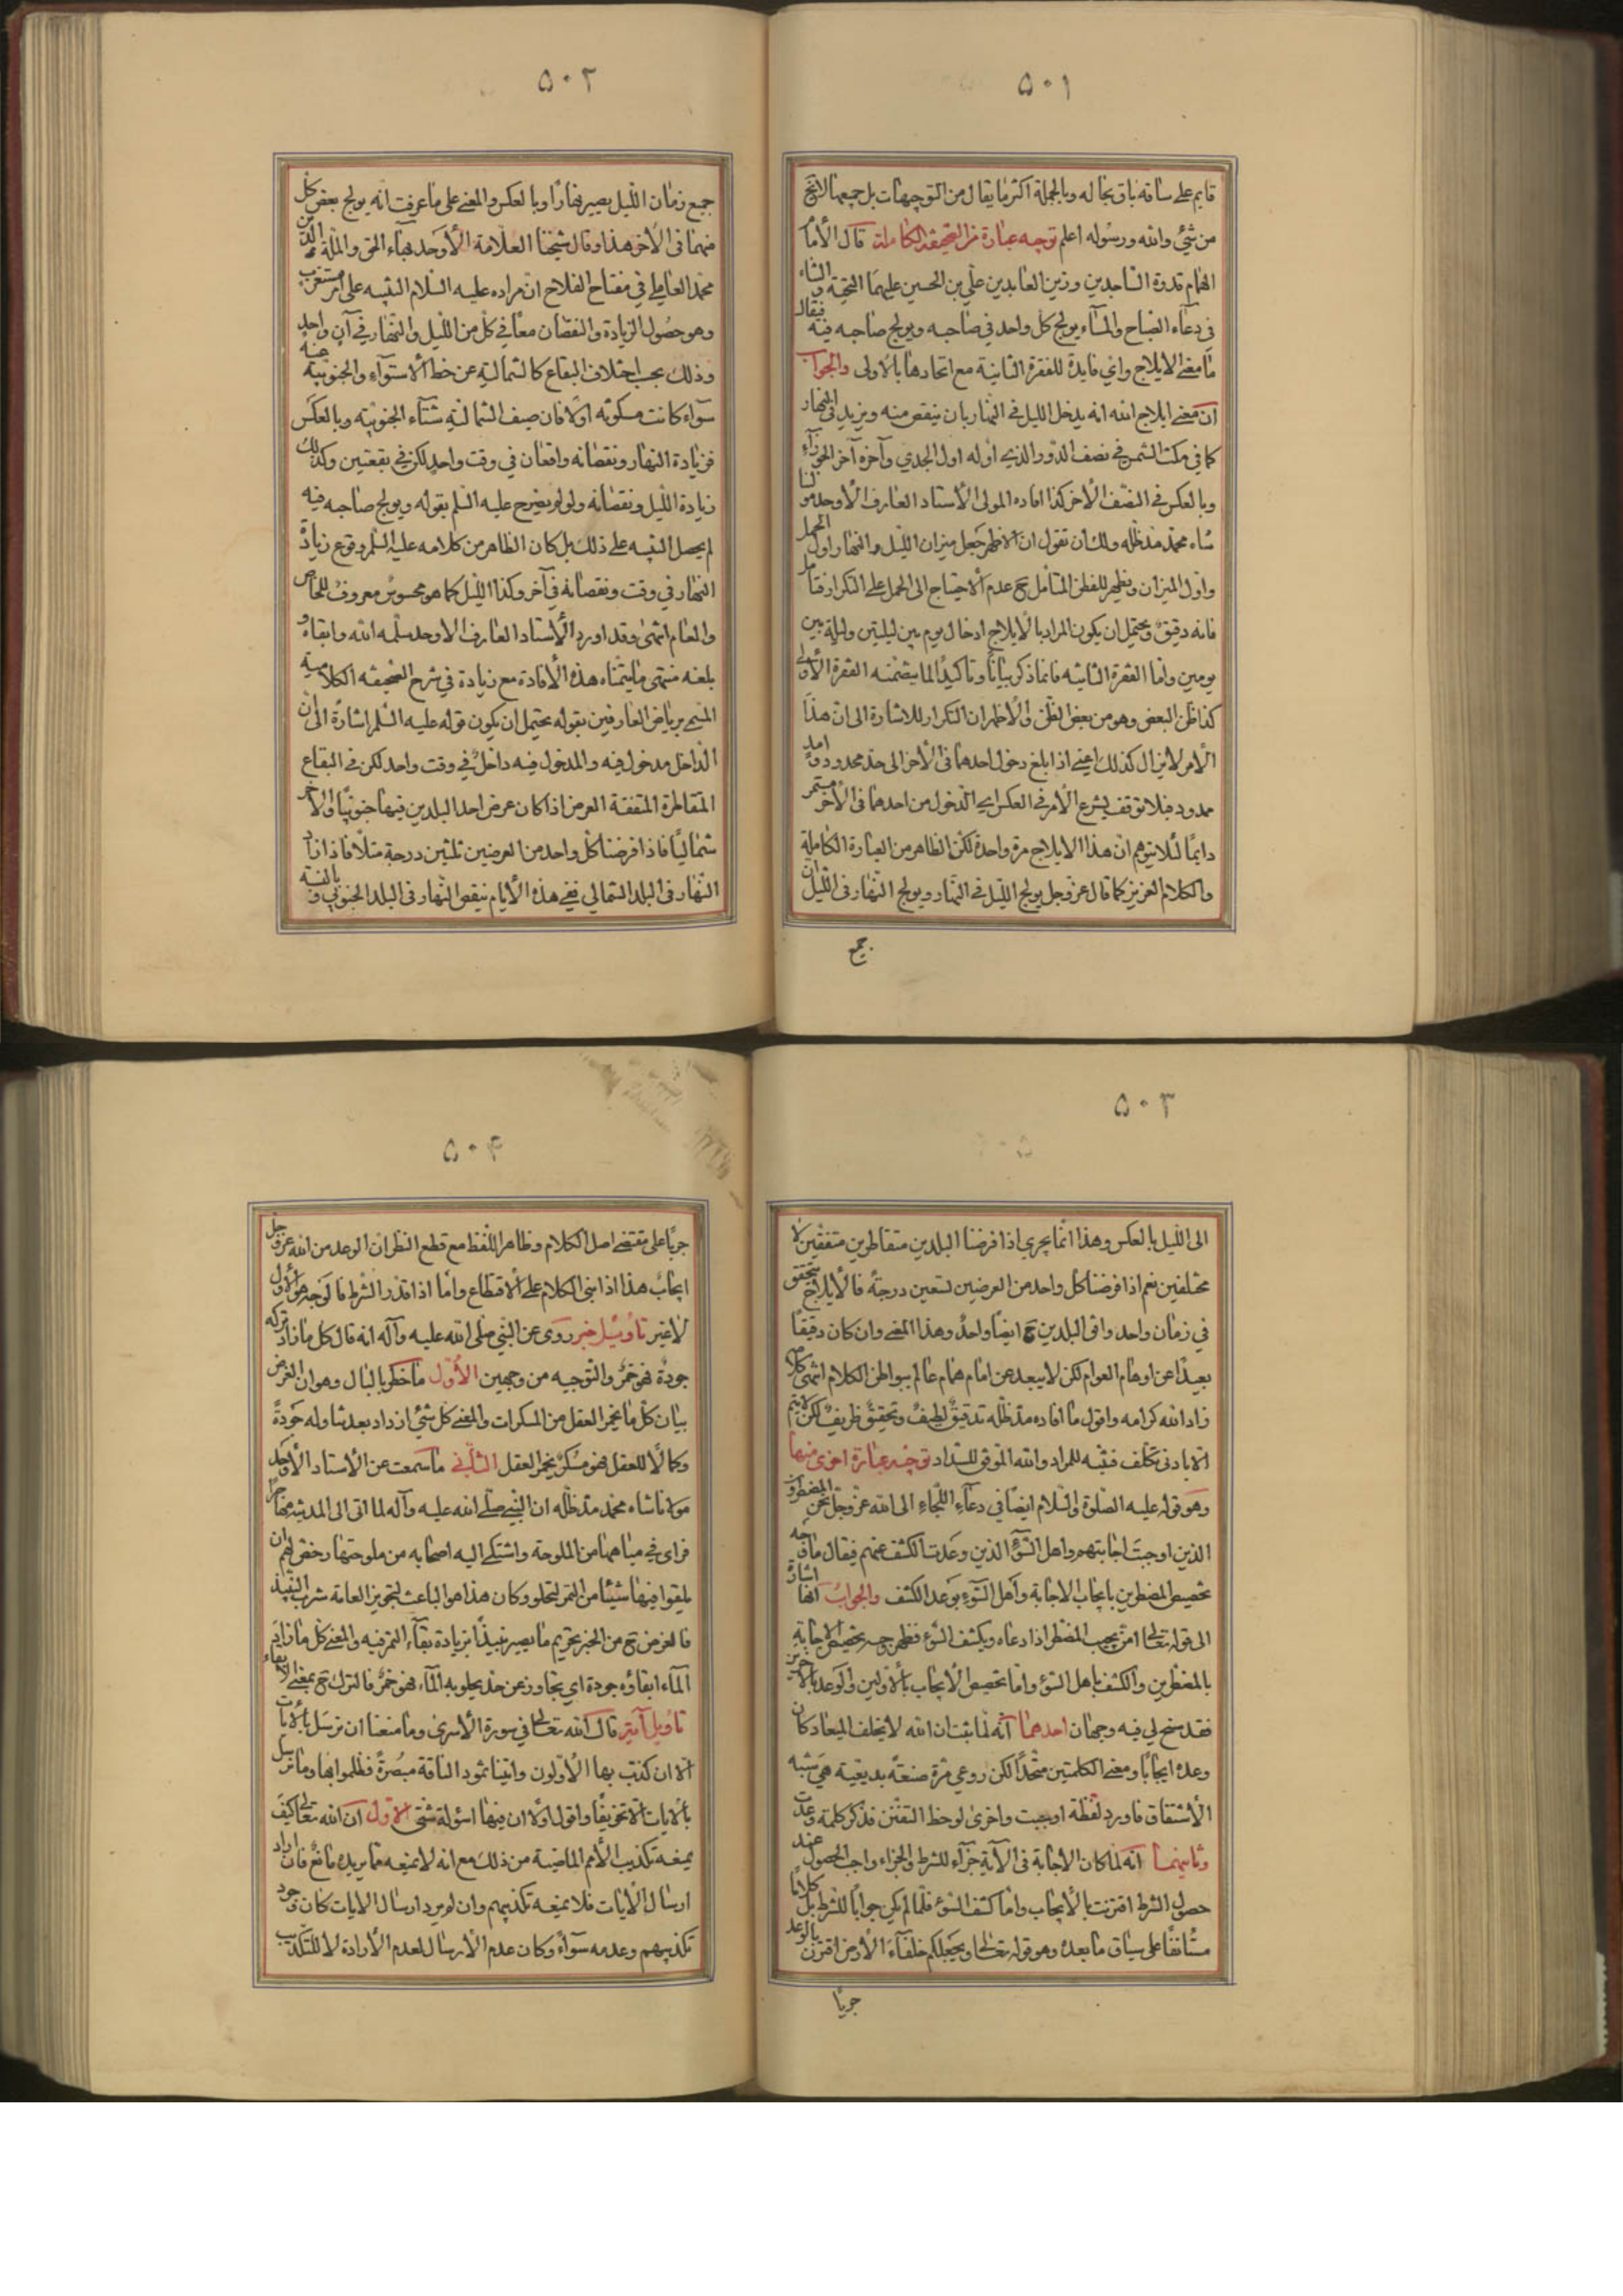 ٥٠١
قايم على ساقه باق بحاله وبالجملة اكثر ما يقال من التوجيهات بل جميعها لا يخ
من شئ والله ورسوله اعلم توجيه عبارة من الصحيفة الكاملة قال الأمام
الهمام قدوة الساجدين وزين العابدين علي بن الحسين عليهما التحية والثناء
في دعاء الصباح والمساء يولج كل واحد في صاحبه ويولج صاحبه فيه فيقال
ما معنى الايلاج واي فايدة للفقرة الثانية مع اتحادها بالاولى والجواب
ان معنى ايلاج الله انه يدخل الليل في النهار بان ينقص منه ويزيد في النهار
كما في مكث الشمس في نصف الدور الذي اوله اول الجدي وآخره آخر الجوزاء
وبالعكس في النصف الأخر كذا افاده المولى الأستاد العارف الأوحد مولنا
شاه محمد مد ظله ولك أن تقول ان الاظهر جعل ميزان الليل والنهار اول الحمل
واول الميزان ويظهر للفطن المتأمل ح عدم الأحتياج الى الحمل على التكرار فتأمل
فانه دقيق ويحتمل ان يكون المراد بالأيلاج ادخال يوم بين ليلتين وليلة بين
يومين واما الفقرة الثانيه فانما ذكر بيانا وتاكيدا لما يتضمنه الفقرة الأولى
كذا ظن البعض وهو من بعض الظن والأظهر ان التكرار للاشارة الى ان هذا
الأمر لا يزال كذلك اعني اذا بلغ دخول احدهما في الأخر الى حد محدود وامد
ممدود فبلا توقف يشرع الأمر في العكس اي الدخول من احدهما في الأخر مستمر
دايما لئلا يتوهم ان هذا الايلاج مرة واحدة لكن الظاهر من العبارة الكاملة
والكلام العزيز كما قال عز وجل يولج الليل في النهار ويولج النهار في الليل ان
جميع
٥٠٢
جميع زمان الليل يصير نهارا وبالعكس والمعنى على ما عرفت انه يولج بعض كل
منهما في الأخر هذا وقال شيخنا العلامة الأوحد بهاء الحق والملة والدين
محمد العاملي في مفتاح الفلاح ان مراده عليه السلام التنبيه على امر مستغرب
وهو حصول الزيادة والنقصان معا في كل من الليل والنهار في آن واحد
وذلك بحسب اختلاف البقاع كالشمالية عن خط الاستواء والجنوبية عنه
سواء كانت مسكونه اولا فان صيف الشمالية شتاء الجنوبية وبالعكس
فزيادة النهار ونقصانه واقعان في وقت واحد لكن في بقعتين وكذلك
زيادة الليل ونقصانه ولو لم يصرح عليه السلم بقوله ويولج صاحبه فيه
لم يحصل التنبيه على ذلك بل كان الظاهر من كلامه عليه السلم وقوع زيادة
النهار في وقت ونقصانه في آخر وكذا الليل كما هو محسوس معروف للخاص
والعام انتهى وقد اورد الأستاد العارف الاوحد سلمه الله وابقاه و
بلغه منتهى ما يتمناه هذه الأفادة مع زيادة في شرح الصحيفه الكلامية
المسمى برياض العارفين بقوله يحتمل ان يكون قوله عليه السلم اشارة الى ان
الداخل مدخول فيه والمدخول فيه داخل في وقت واحد لكن في البقاع
المتقاطرة المتفقة العرض اذا كان عرض احد البلدين فيها جنوبيا والأخر
شماليا فاذا فرضنا كل واحد من العرضين ثلثين درجة مثلا فاذا زاد
النهار في البلد الشمالي ففي هذه الأيام ينقص النهار في البلد الجنوبي وبالنسبة
٥٠٣
الى الليل بالعكس وهذا انما يجري اذا فرضنا البلدين متقاطرين متفقين لا
مختلفين نعم اذا فرضنا كل واحد من العرضين تسعين درجة فالأيلاج يتحقق
في زمان واحد وافق البلدين ح ايضا واحد وهذا المعنى وان كان دقيقا
بعيدا عن اوهام العوام لكن لا يبعد عن امام همام عالم ببواطن الكلام انتهى كلامه
زاد الله اكرامه واقول ما افاده مد ظله تدقيق لطيف وتحقيق ظريف لكن لا يتم
الا بادنى تكلف فتنبه للمراد والله الموفق للسداد توجيه عبارة اخرى منها
وهو قوله عليه الصلوة والسلام ايضا في دعاء اللجاء الى الله عز وجل نحن المضطرون
الذين اوجبت اجابتهم واهل السوء الذين وعدت الكشف عنهم فيقال ما وجه
تخصيص المضطرين بايجاب الاجابة واهل السوء بوعد الكشف والجواب انها اشارة
الى قوله تعالى امن يجيب المضطر اذا دعاه ويكشف السوء فظهر وجه تخصيص الاجابة
بالمضطرين والكشف باهل السوء واما تخصيص الأيجاب بالأولين والوعد بالأخرين
فقد سنح لي فيه وجهان احدهما انه لما ثبت ان الله لا يخلف الميعاد كان
وعده ايجابا ومعنى الكلمتين متحدا لكن روعي مرة صنعة بديعية هي شبه
الأشتقاق فاورد لفظة اوجبت واخرى لوحظ التفنن فذكر كلمة وعدت
وثانيهما انه لما كان الاجابة في الآية جزآء للشرط والجزاء واجب الحصول عند
حصول الشرط اقترنت بالأيجاب واما كشف السوء فلما لم يكن جوابا للشرط بل كلاما
مستانفا على سياق ما بعده وهو قوله تعالى ويجعلكم خلفاء الأرض اقترن بالوعد
جريا
٥٠٤
جريا على مقتضى اصل الكلام وظاهر اللفظ مع قطع النظر ان الوعد من الله عز وجل
ايجاب هذا اذا بني الكلام على الأقتطاع واما اذا قدر الشرط فالوجه هو الأول
لا غير تأويل خبر روى عن النبي صلى الله عليه وآله انه قال كل ما زاد تركه
جودة فهو خمر والتوجيه من وجهين الأول ما خطر بالبال وهو ان الغرض
بيان كل ما يخمر العقل من المسكرات والمعنى كل شئ ازداد بعد تناوله جودة
وكمالا للعقل فهو مسكر يخمر العقل الثاني ما سمعت عن الأستاد الأوحد
مولانا شاه محمد مد ظله ان النبي صلى الله عليه وآله لما اتى الى المدينة مهاجرا
فراى في مياهها من الملوحة واشتكى اليه اصحابه من ملوحتها رخص لهم ان
يلقوا فيها شيئا من التمر لتحلو وكان هذا هو الباعث لتجويز العامة شرب النبيذ
فالغرض ح من الخبر تحريم ما يصير نبيذا بزيادة بقاء التمر فيه والمعنى كل ما زاد في
الماء ابقاؤه جودة اي يتجاوز عن حد يحلو به الماء فهو خمر فالترك ح بمعنى الابقاء
تأويل آية قال الله تعالى في سورة الأسرى وما منعنا ان نرسل بالأيات
الا ان كذب بها الأولون واتينا ثمود الناقة مبصرة فظلموا بها وما نرسل
بالايات الا تخويفا واقول اولا ان فيها اسولة شتى الاول ان الله تعالى كيف
يمنعه تكذيب الأمم الماضية من ذلك مع انه لا يمنعه عما يريده مانع فان اراد
ارسال الأيات فلا يمنعه تكذيبهم وان لم يرد ارسال الايات كان وجود
تكذيبهم وعدمه سواء وكان عدم الأرسال لعدم الأرادة لا للتكذيب